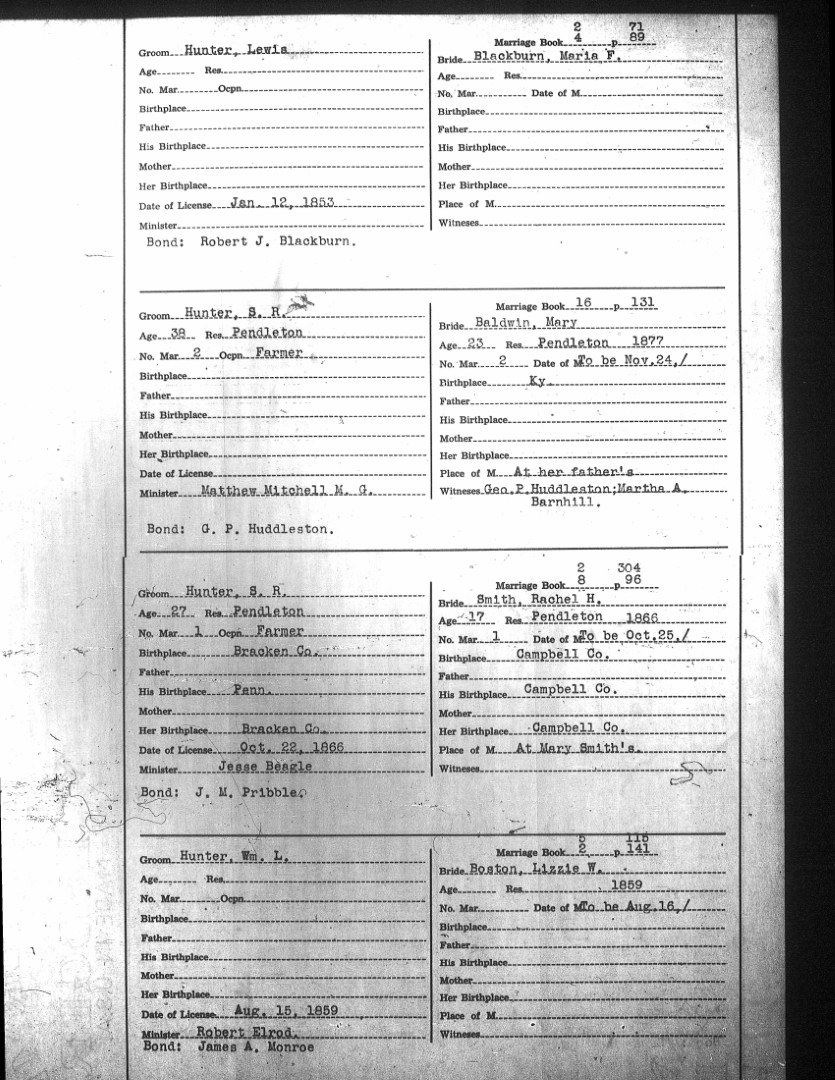 2 71
Marriage Book 4 p. 89
Groom Hunter, Lewis
Bride Blackburn, Maria F.
Age Res.
Age Res.
No. Mar. Ocpn.
No. Mar. Date of M.
Birthplace
Birthplace
Father
Father
His Birthplace
His Birthplace
Mother
Mother
Her Birthplace
Her Birthplace
Date of License Jan. 12, 1853
Place of M.
Minister
Witneses
Bond: Robert J. Blackburn.
Marriage Book 16 p. 131
Groom Hunter, S. R.
Bride Baldwin, Mary
Age 38 Res. Pendleton
Age 23 Res. Pendleton 1877
No. Mar. 2 Ocpn. Farmer
No. Mar. 2 Date of M. To be Nov.24,/
Birthplace
Birthplace Ky.
Father
Father
His Birthplace
His Birthplace
Mother
Mother
Her Birthplace
Her Birthplace
Date of License
Place of M. At her father's
Minister Matthew Mitchell M. G.
Witneses Geo. P. Huddleston; Martha A.
Barnhill.
Bond: G. P. Huddleston.
2 304
Marriage Book 8 p. 96
Groom Hunter, S. R.
Bride Smith, Rachel H.
Age 27 Res. Pendleton
Age 17 Res. Pendleton 1866
No. Mar. 1 Ocpn. Farmer
No. Mar. 1 Date of M. To be Oct.25,/
Birthplace Bracken Co.
Birthplace Campbell Co.
Father
Father
His Birthplace Penn.
His Birthplace Campbell Co.
Mother
Mother
Her Birthplace Bracken Co.
Her Birthplace Campbell Co.
Date of License Oct. 22, 1866
Place of M. At Mary Smith's.
Minister Jesse Beagle
Witneses
Bond: J. M. Pribble.
5 115
Marriage Book 2 p. 141
Groom Hunter, Wm. L.
Bride Boston, Lizzie W.
Age Res.
Age Res. 1859
No. Mar. Ocpn.
No. Mar. Date of M. To be Aug.16,/
Birthplace
Birthplace
Father
Father
His Birthplace
His Birthplace
Mother
Mother
Her Birthplace
Her Birthplace
Date of License Aug. 15, 1859
Place of M.
Minister Robert Elrod.
Witneses
Bond: James A. Monroe